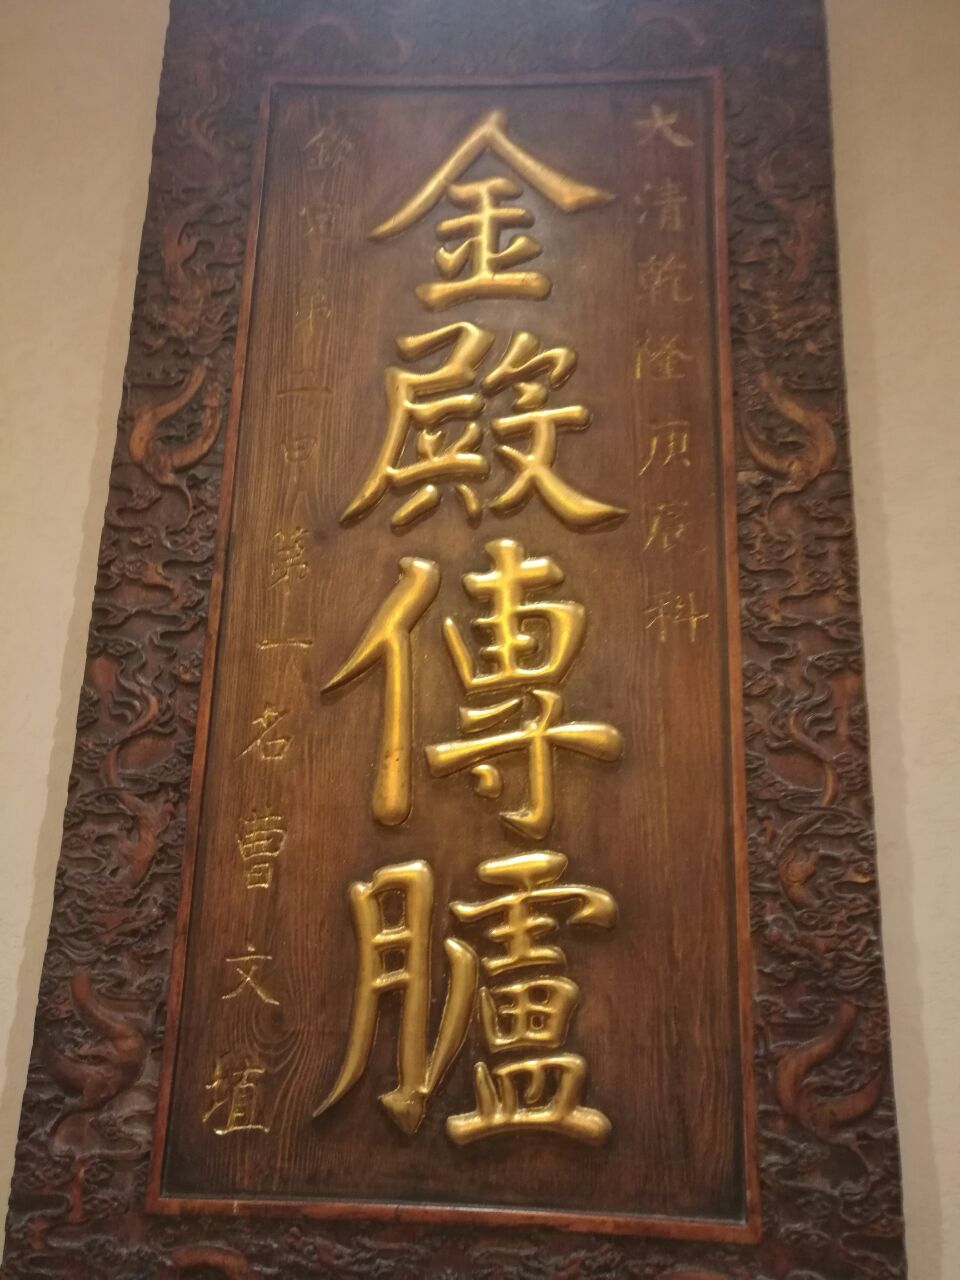 大清乾隆庚辰科
金殿傳臚
欽定第二甲第一名曹文埴